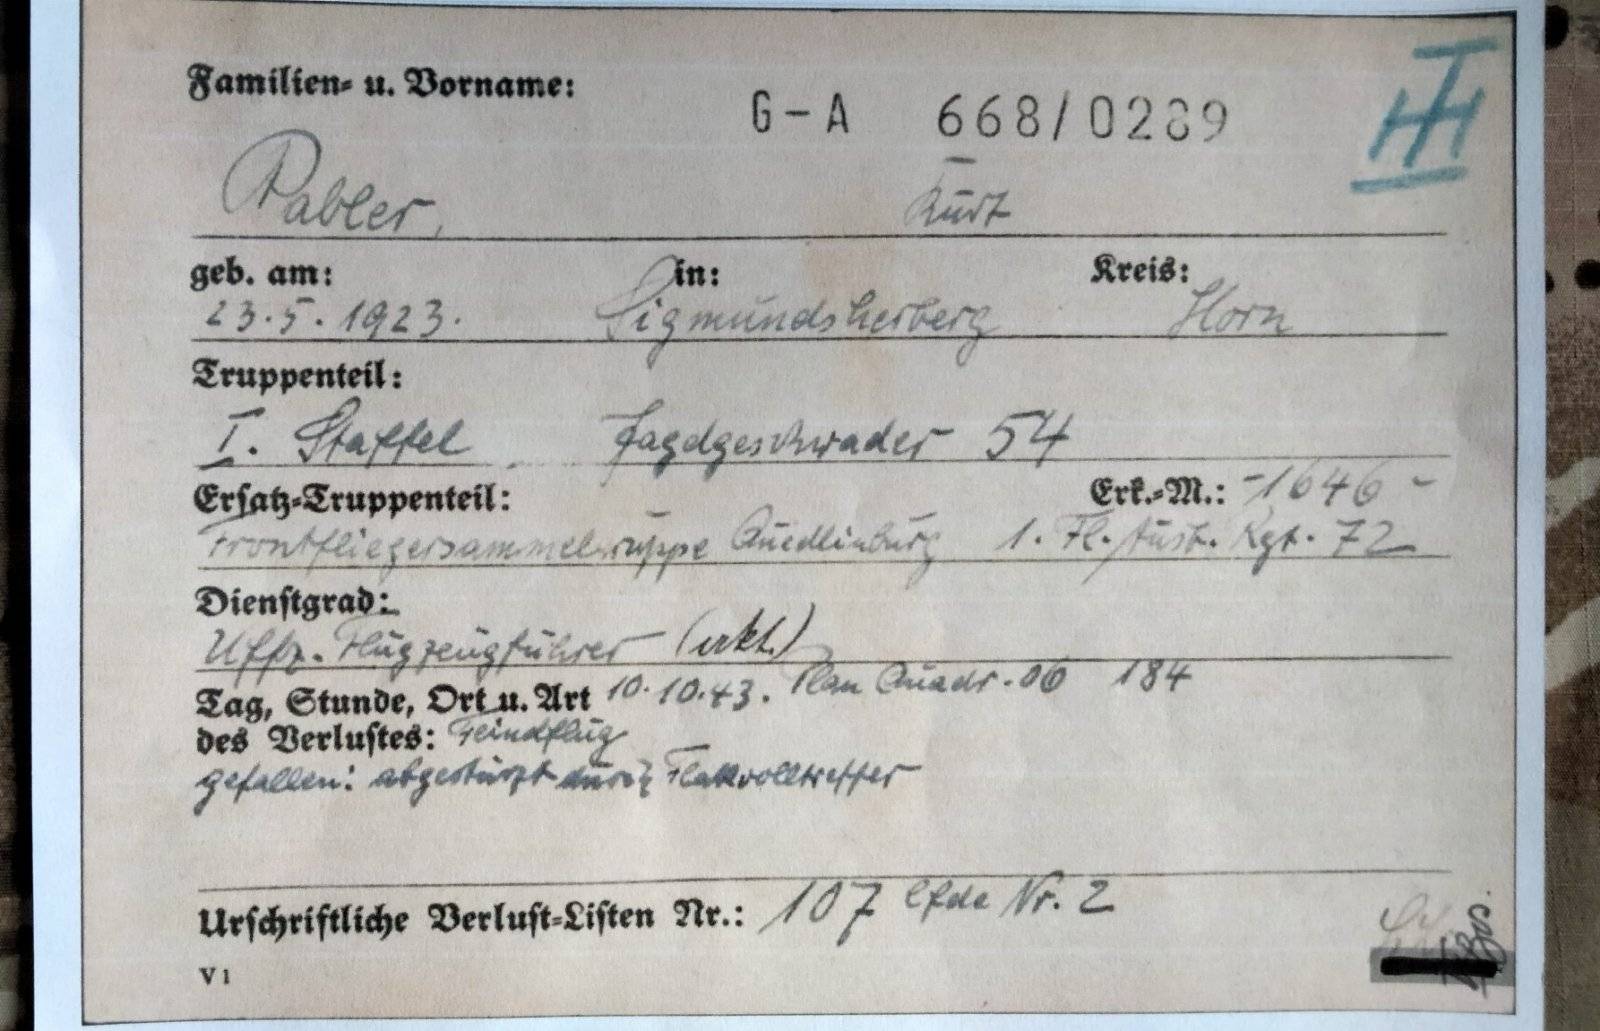 Familien- u. Vorname:
G-A 668/0289
Pabler, Kurt
geb. am: in: Kreis:
23.5.1923. Sigmundsherberg Horn
Truppenteil:
I. Staffel Jagdgeschwader 54
Ersatz-Truppenteil: Erk.-M.: -1646-
Frontfliegersammelgruppe Quedlinburg 1. Fl. Ausb. Rgt. 72
Dienstgrad:
Uffz. Flugzeugführer
Tag, Stunde, Ort u. Art 10.10.43. Plan Quadr. 06 184
des Verlustes: Feindflug
gefallen: abgestürzt durch Flakvolltreffer
Urschriftliche Verlust-Listen Nr.: 107 lfde Nr. 2
V 1